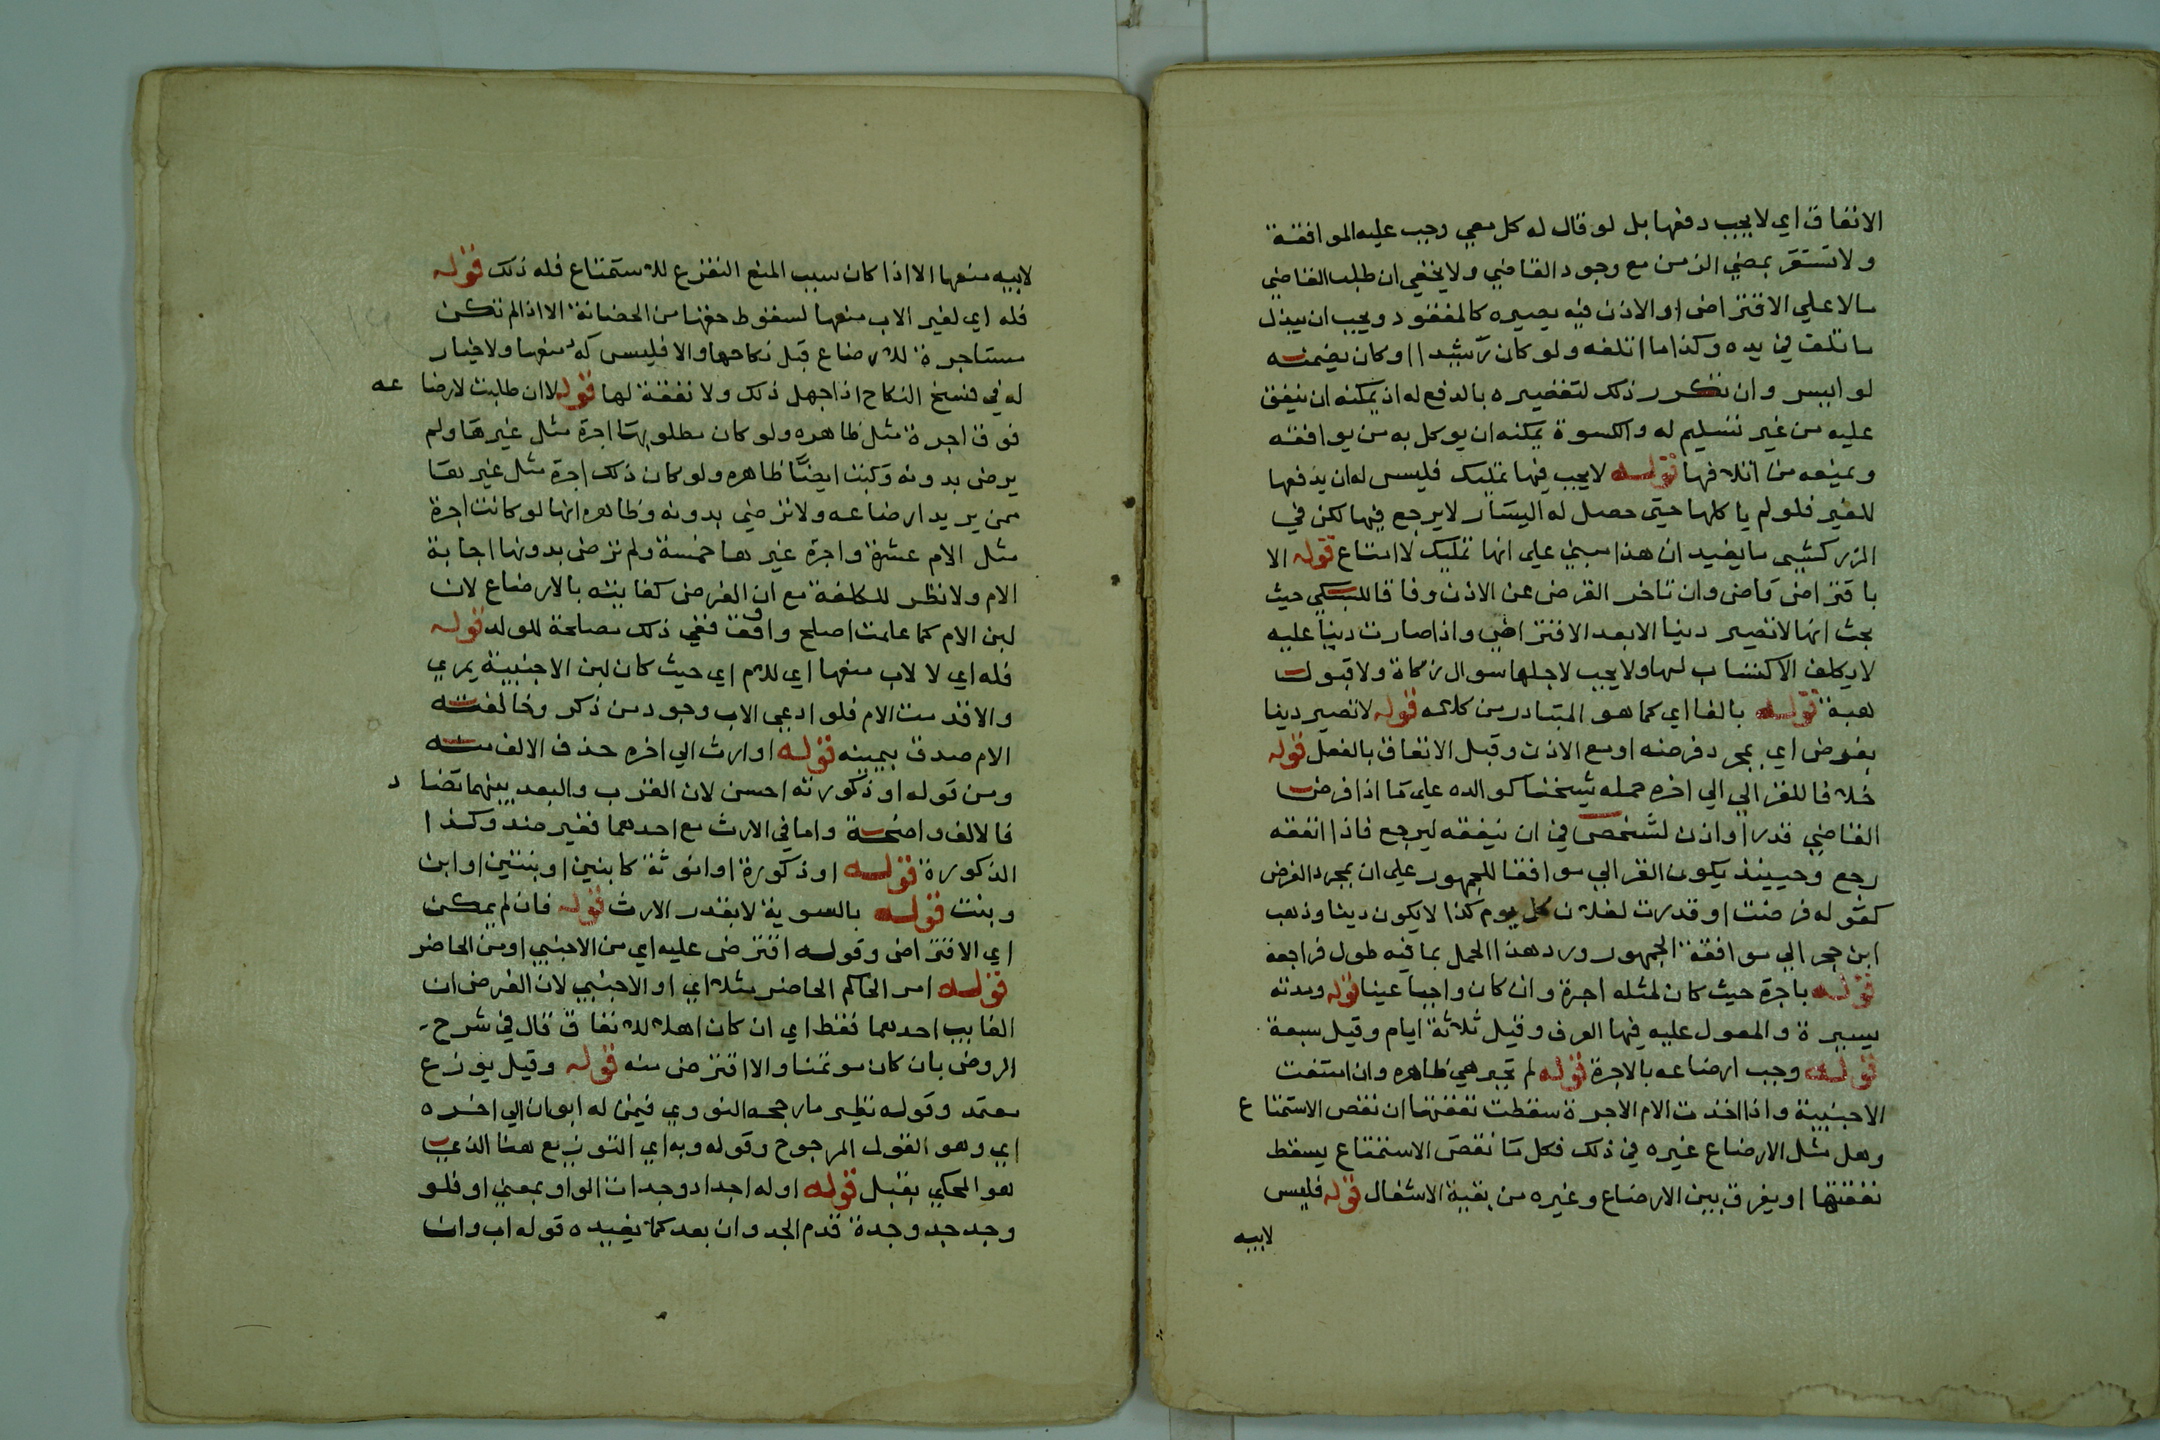 الانفاق اي لا يجب دفعها بل لو قال له كل معي وجب عليه الموافقة
ولا تستقر بمضي الزمن مع وجود القاضي ولا يخفي ان طلب القاضي
مالا علي الاقتراض او الاذن فيه يصيره كالمفقود ويجب ان يبذل
ما تلف في يده وكذا ما اتلفه ولو كان رشيدا وكان يضمنه
لو ايسر وان تكرر ذلك لتقصيره بالدفع له اذ يمكنه ان ينفق
عليه من غير تسليم له والكسوة يمكنه ان يوكل به من يوافقه
ويمنعه من اتلافها قوله لا يجب فيها تمليك فليس له ان يدفعها
للغير فلو لم ياكلها حتي حصل له اليسار لا يرجع فيها لكن في
الزركشي ما يفيد ان هذا مبني علي انها تمليك لا امتاع قوله الا
باقتراض قاض وان تاخر القرض عن الاذن وفاقا للسبكي حيث
بحث انها لا تصير دينا الا بعد الاقتراض واذا صارت دينا عليه
لا يكلف الاكتساب لها ولا يجب لاجلها سوال زكاة ولا قبول
هبة قوله بالفا اي كما هو المتبادر من كلامه قوله لا تصير دينا
بفرض اي بمجرد فرضه او مع الاذن وقبل الانفاق بالفعل قوله
خلافا للغزالي الي اخره حمله شيخنا كوالده علي ما اذا فرض
القاضي قدرا واذن لشخص في ان ينفقه ليرجع فاذا انفقه
رجع وحينيذ يكون الغزالي موافقا للجمهور علي ان بمجرد الفرض
كقوله فرضت او قدرت لفلان كل يوم كذا لا يكون دينا وذهب
ابن حجر الي موافقة الجمهور ورد هذا الحمل بما فيه طول فراجعه
قوله باجرة حيث كان لمثله اجرة وان كان واجبا عينا قوله ومدته
يسيرة والمعول عليه فيها العرف وقيل ثلاثة ايام وقيل سبعة
قوله وجب ارضاعه بالاجرة قوله لم تجبر هي ظاهره وان امتنعت
الاجنبية واذا اخذت الام الاجرة سقطت نفقتها ان نقص الاستمتاع
وهل مثل الارضاع غيره في ذلك فكل ما نقص الاستمتاع يسقط
نفقتها او يفرق بين الارضاع وغيره من بقية الاشغال قوله فليس
لابيه
لابيه منعها الا اذا كان سبب المنع التفرع للاستمتاع فله ذلك قوله
فله اي لغير الاب منعها لسقوط حقها من الحضانة الا اذا لم تكن
مستاجرة للارضاع قبل نكاحها والا فليس له منعها ولا خيار
له في فسخ النكاح اذا جهل ذلك ولا نفقة لها قوله لا ان طلبت لارضاعه
فوق اجرة مثل ظاهره ولو كان مطلوبها اجرة مثل غيرها ولم
يرض بدونه وكتب ايضا ظاهره ولو كان ذلك اجرة مثل غيرها
ممن يريد ارضاعه ولا ترضي بدونه وظاهره انها لو كانت اجرة
مثل الام عشرة واجرة غيرها خمسة ولم ترض بدونها اجابة
الام ولا نظر للكلفة مع ان الغرض كفايته بالارضاع لان
لبن الام كما علمت اصلح واوفق ففي ذلك مصلحة للولد قوله
فله اي لا لاب منعها اي للام اي حيث كان لبن الاجنبية يمري
والا قدمت الام فلو ادعي الاب وجود من ذكر وخالفته
الام صدق بيمينه قوله او ارث الي اخره حذف الالف منه
ومن قوله او ذكورته احسن لان القرب والبعد بينهما تضاد
فالالف واضحة واما في الارث مع احدهما فغير ضد وكذا
الذكورة قوله او ذكورة او انوثة كابنين او بنتين او ابن
وبنت قوله بالسوية لا بقدر الارث قوله فان لم يمكن
اي الاقتراض وقوله اقترض عليه اي من الاجنبي او من الحاضر
قوله امر الحاكم الحاضر مثلا اي او الاجنبي لان الفرض ان
الغايب احدهما فقط اي ان كان اهلا للانفاق قال في شرح
الروض بان كان موتمنا والا اقترض منه قوله وقيل يوزع
معتمد وقوله نظير ما رجحه النووي فيمن له ابوان الي اخره
اي وهو القول المرجوح وقوله وبه اي التوزيع هنا الذي
هو المحكي بقيل قوله او له اجداد وجدات الواو بمعني او فلو
وجد جد وجدة قدم الجد وان بعد كما يفيده قوله اب وان